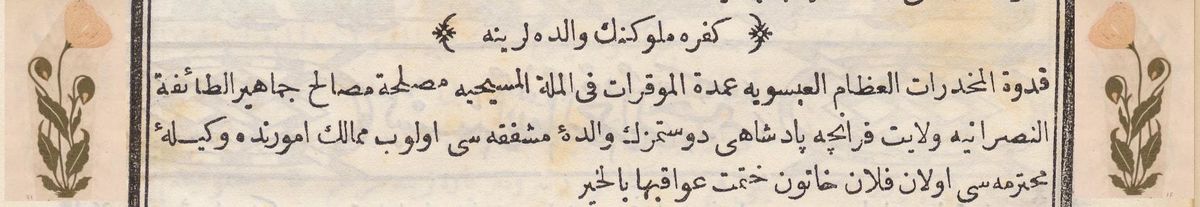 كفره ملوكنك والده لرينه
قدوة المخدرات العظام العيسويه عمدة الموقرات فى الملة المسيحيه مصلحة مصالح جماهير الطائفة
النصرانيه ولايت فرانچه پادشاهى دوستمزك والدهٔ مشفقه سى اولوب ممالك امورنده وكيلهٔ
محترمه سى اولان فلان خاتون ختمت عواقبها بالخير